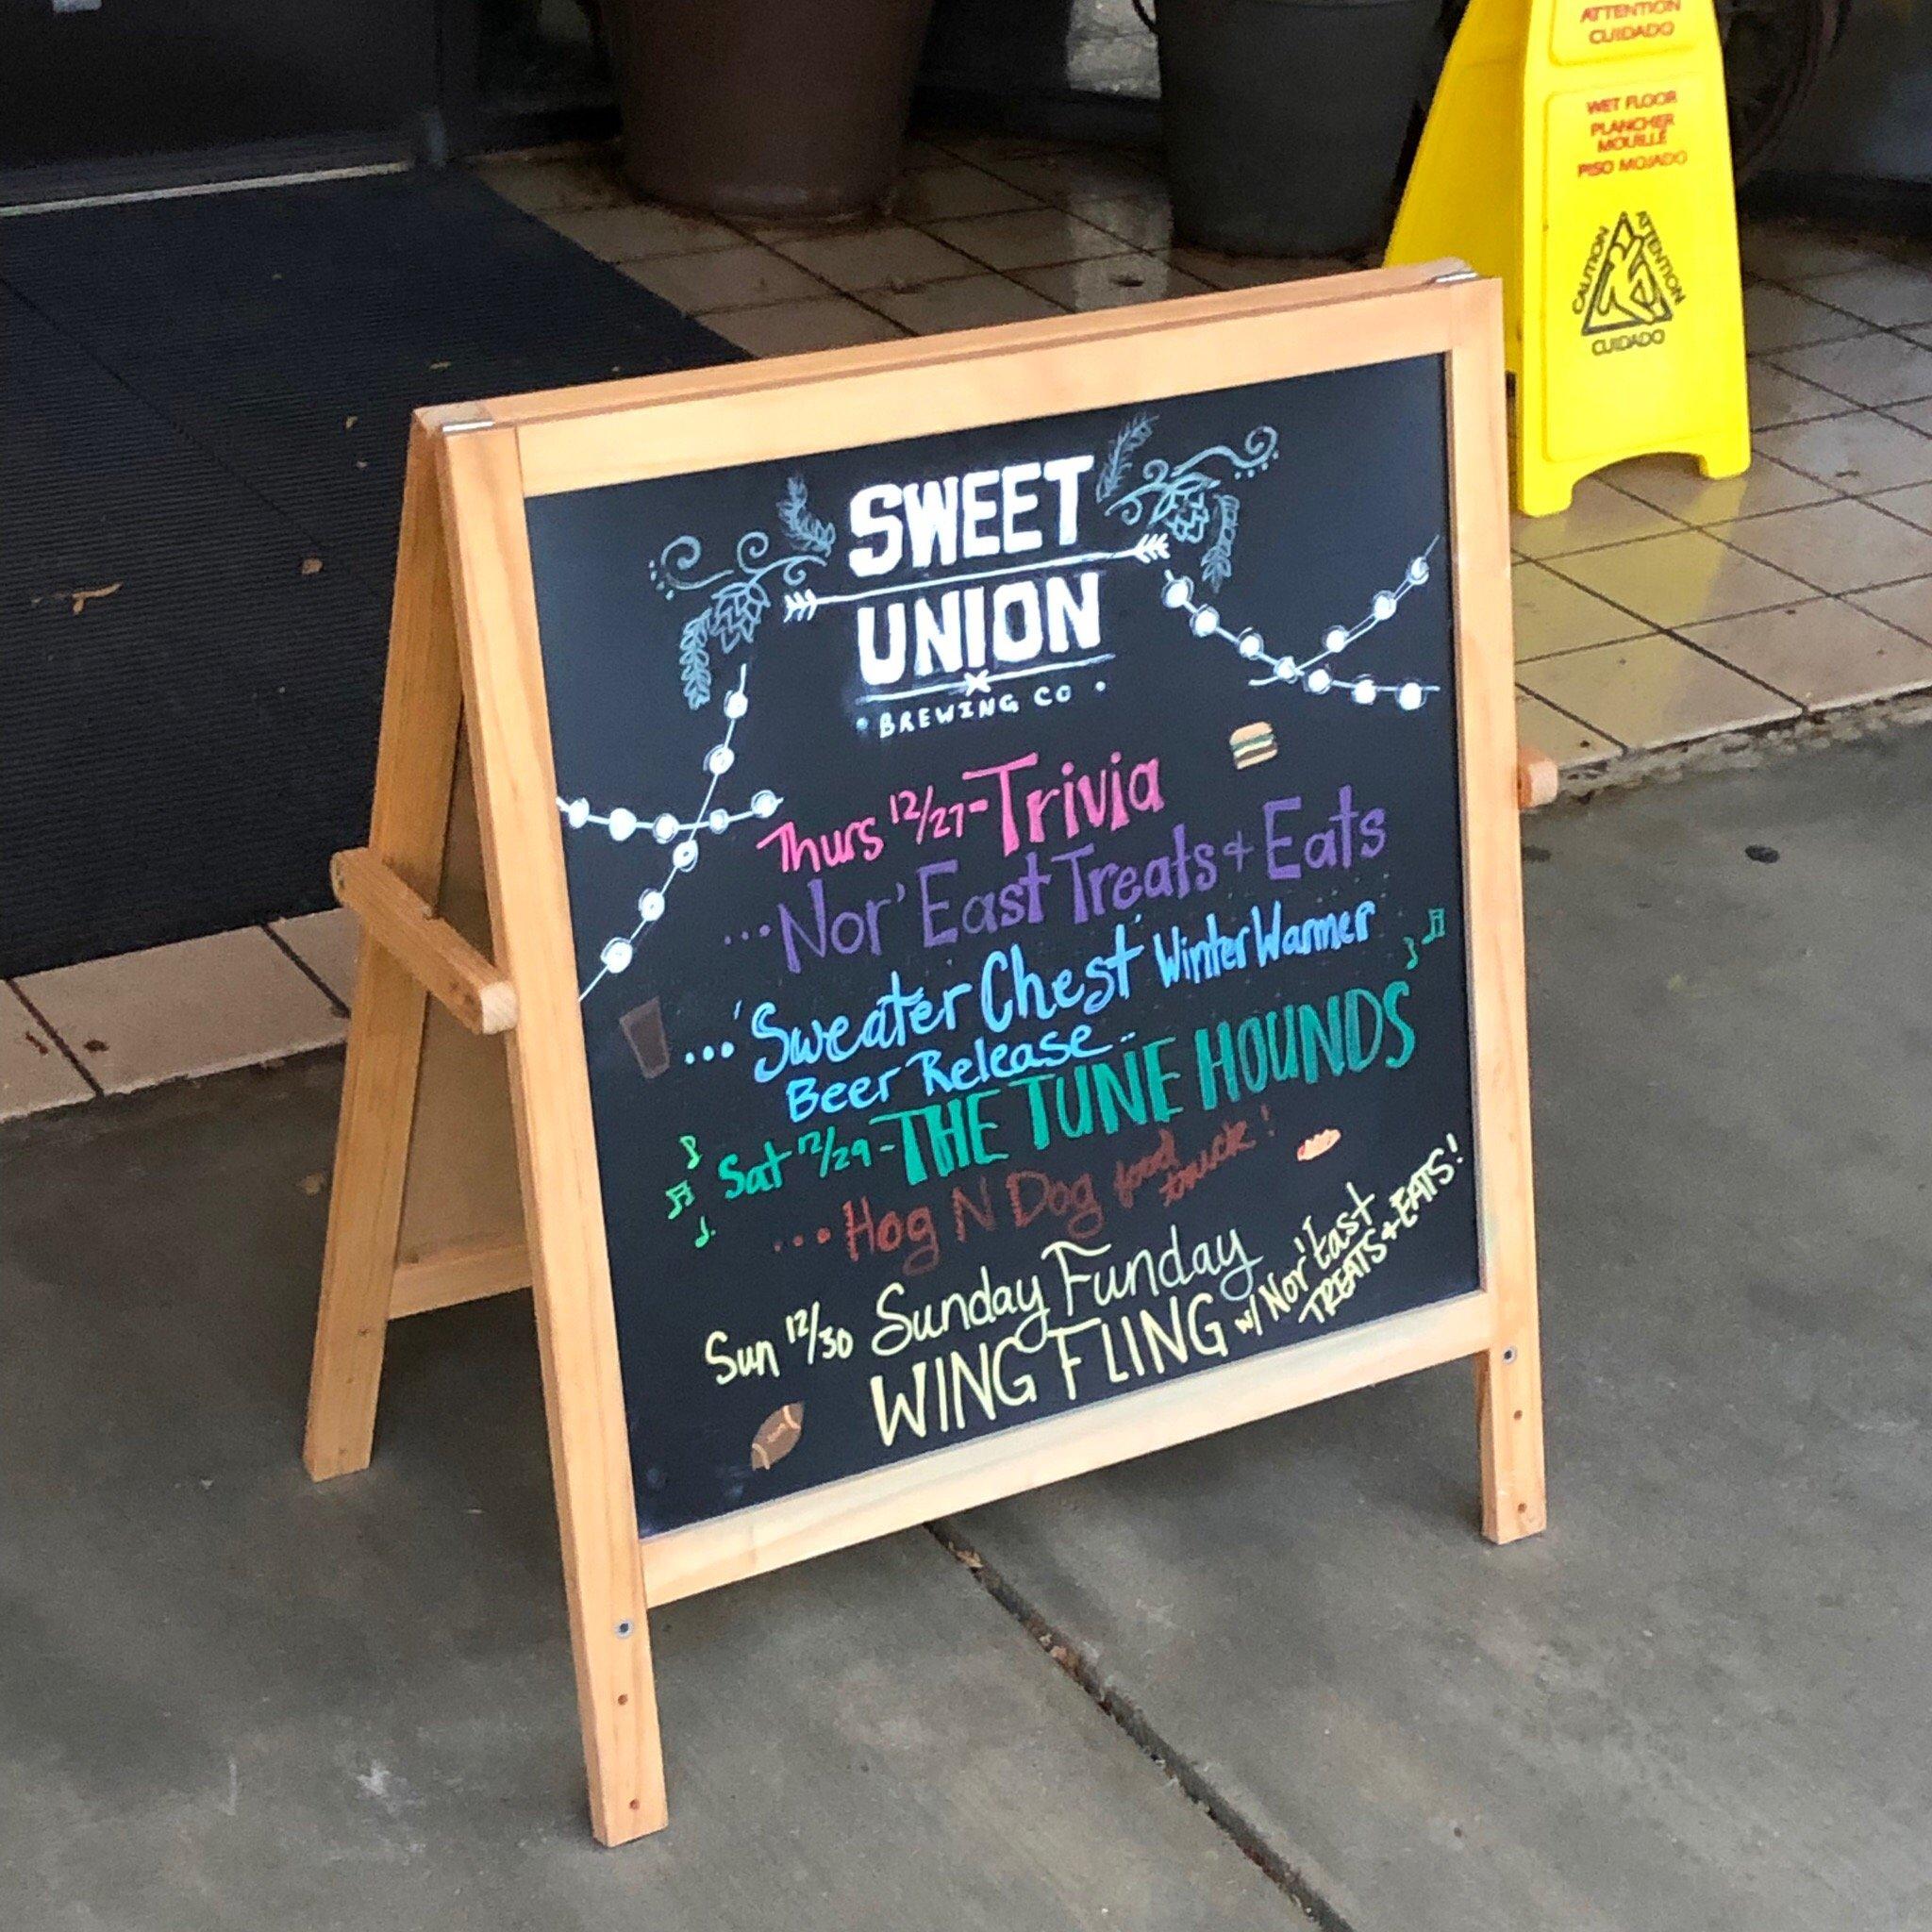 ATTENTION
CUIDADO
WET FLOOR
PLANCHER
MOUILLÉ
PISO MOJADO
CAUTION
ATTENTION
CUIDADO
SWEET
UNION
• BREWING CO •
Thurs 12/27 - Trivia
... Nor'East Treats + Eats
... 'Sweater Chest' Winter Warmer
Beer Release...
Sat 12/29 - THE TUNE HOUNDS
... Hog N Dog food truck!
Sun 12/30 Sunday Funday
WING FLING w/ Nor'East
TREATS + EATS!